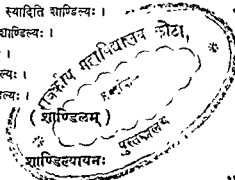 स्यादिति शाण्डिल्यः ।
शाण्डिल्यः ।
ल्यः ।
डिल्यः ।
राजकीय महाविद्यालय कोटा,
( शाण्डिलम् )
पुस्तकालय
शाण्डिल्यायनः